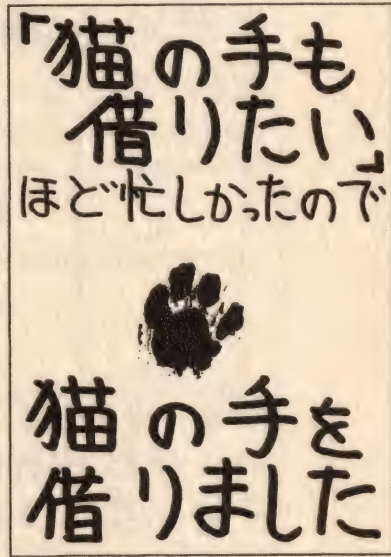 「猫の手も
借りたい」
ほど忙しかったので
猫の手を
借りました